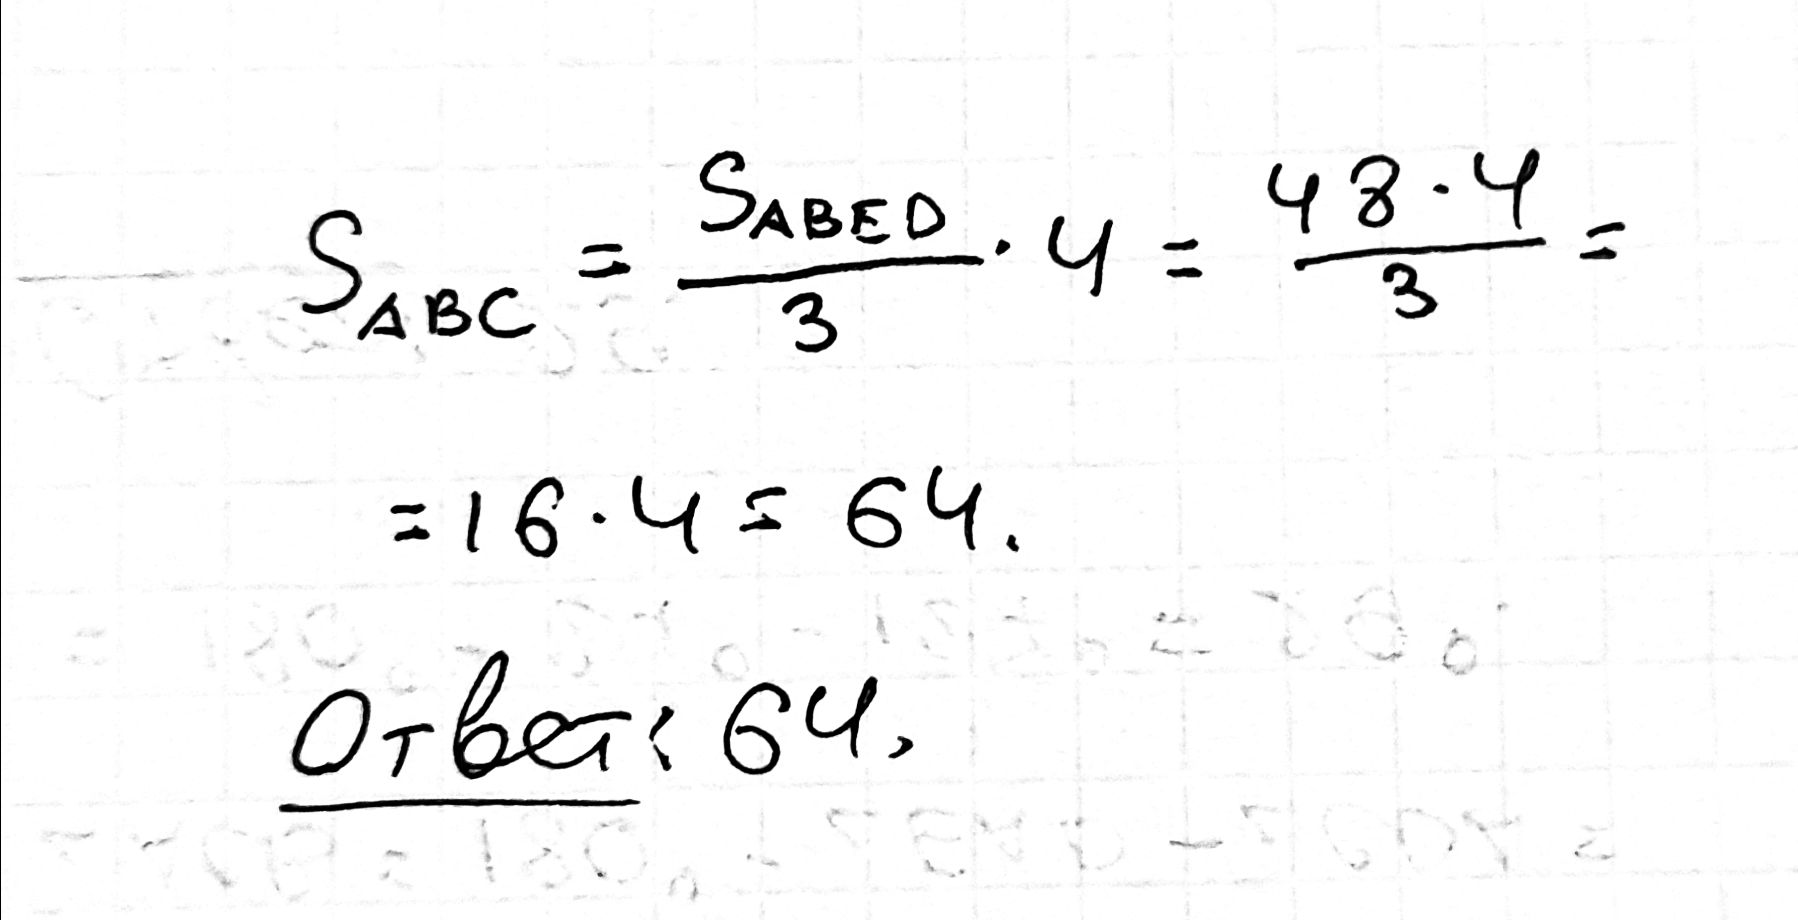 S_ABC = S_ABED / 3 · 4 = 48 · 4 / 3 =
= 16 · 4 = 64.
Ответ: 64.